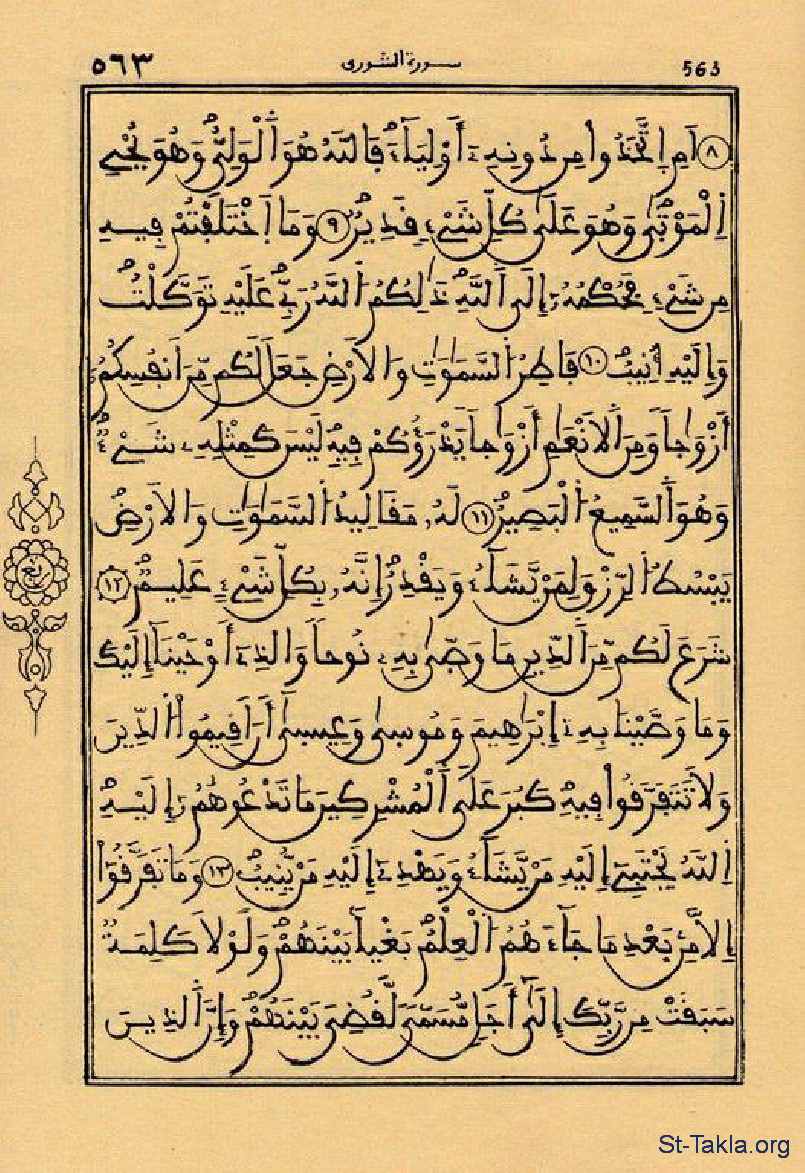 ٥٦٣ سورة الشورى 563
٨ اَمِ اِ۪تَّخَذُواْ مِن دُونِهِۦٓ أَوْلِيَآءَۖ فَاللَّهُ هُوَ اَ۬لْوَلِيُّۖ وَهُوَ يُحْيِ
اِ۬لْمَوْتَىٰ وَهُوَ عَلَىٰ كُلِّ شَيْءٖ قَدِيرٞۖ ٩ وَمَا اَ۪خْتَلَفْتُمْ فِيهِ
مِن شَيْءٖ فَحُكْمُهُۥٓ إِلَى اَ۬للَّهِۖ ذَٰلِكُمُ اُ۬للَّهُ رَبِّي عَلَيْهِ تَوَكَّلْتُۖ
وَإِلَيْهِ أُنِيبُۖ ١٠ فَاطِرُ اُ۬لسَّمَٰوَٰتِ وَالَارْضِ جَعَلَ لَكُم مِّنَ اَنفُسِكُمُۥٓ
أَزْوَٰجاٗ وَمِنَ اَ۬لَانْعَٰمِ أَزْوَٰجاٗ يَذْرَؤُكُمْ فِيهِۖ لَيْسَ كَمِثْلِهِۦ شَيْءٞۖ
وَهُوَ اَ۬لسَّمِيعُ اُ۬لْبَصِيرُۖ ١١ لَهُۥ مَقَالِيدُ اُ۬لسَّمَٰوَٰتِ وَالَارْضِۖ
يَبْسُطُ اُ۬لرِّزْقَ لِمَنْ يَّشَآءُ وَيَقْدِرُۖ إِنَّهُۥ بِكُلِّ شَيْءٍ عَلِيمٞۖ ١٢
شَرَعَ لَكُم مِّنَ اَ۬لدِّينِ مَا وَصّ۪ىٰ بِهِۦ نُوحاٗ وَالذِےٓ أَوْحَيْنَآ إِلَيْكَ
وَمَا وَصَّيْنَا بِهِۦٓ إِبْرَٰهِيمَ وَمُوسَىٰ وَعِيسَىٰٓ أَنَ اَقِيمُواْ اُ۬لدِّينَ
وَلَا تَتَفَرَّقُواْ فِيهِۖ كَبُرَ عَلَى اَ۬لْمُشْرِكِينَ مَا تَدْعُوهُمُۥٓ إِلَيْهِۖ
اِ۬للَّهُ يَجْتَبِےٓ إِلَيْهِ مَنْ يَّشَآءُ وَيَهْدِےٓ إِلَيْهِ مَنْ يُّنِيبُۖ ١٣ وَمَا تَفَرَّقُوٓاْ
إِلَّا مِنۢ بَعْدِ مَا جَآءَهُمُ اُ۬لْعِلْمُ بَغْياَۢ بَيْنَهُمْۖ وَلَوْلَا كَلِمَةٞ
سَبَقَتْ مِن رَّبِّكَ إِلَىٰٓ أَجَلٖ مُّسَمّىٗ لَّقُضِيَ بَيْنَهُمْۖ وَإِنَّ اَ۬لذِينَ
ربع
St-Takla.org